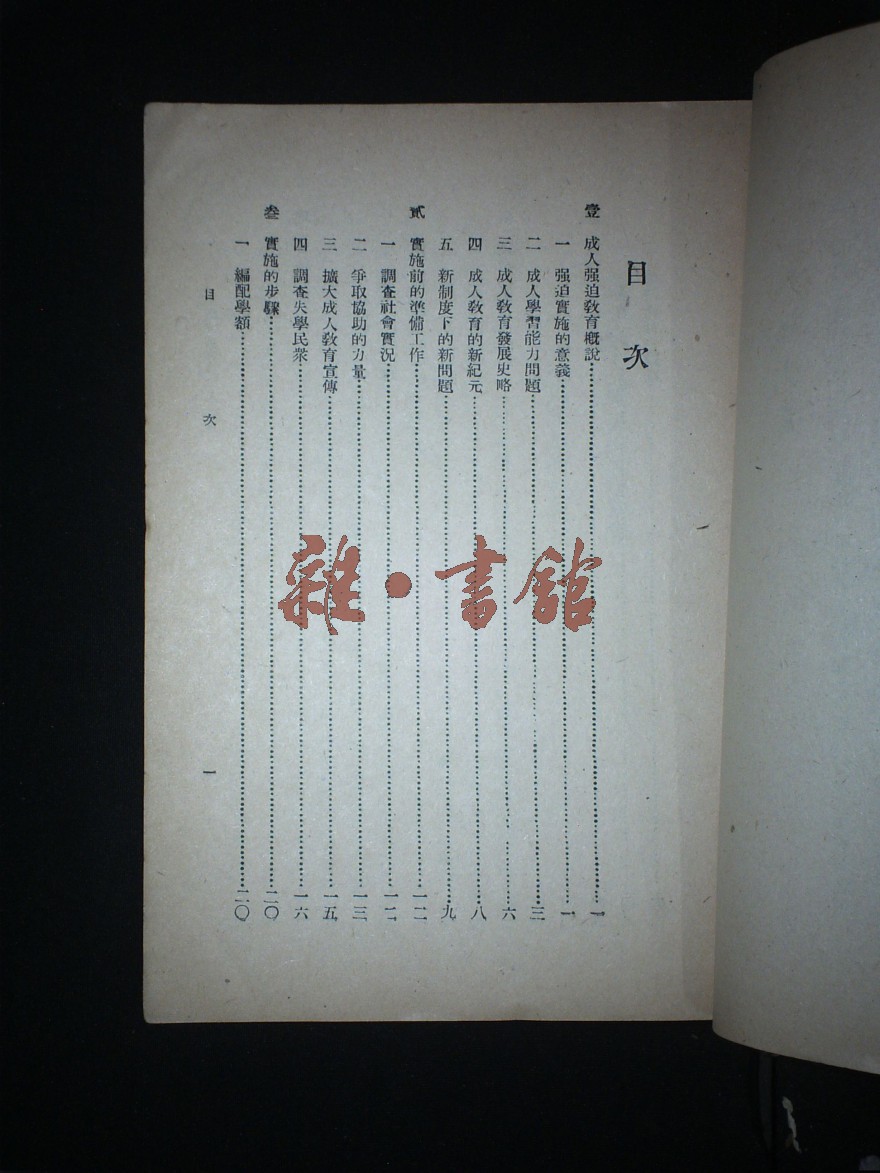 目次
壹 成人强迫敎育槪說……一
一 强迫實施的意義……一
二 成人學習能力問題……三
三 成人敎育發展史略……六
四 成人敎育的新紀元……八
五 新制度下的新問題……九
貳 實施前的準備工作……一二
一 調查社會實況……一二
二 爭取協助的力量……一三
三 擴大成人敎育宣傳……一五
四 調查失學民衆……一六
叁 實施的步驟……二〇
一 編配學額……二〇
目次 一
雜·書館